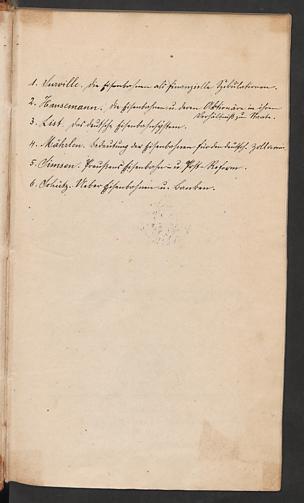 1. Surville. Die Eisenbahnen als finanzielle Spekulationen.
2. Hansemann. Die Eisenbahnen u. deren Aktionäre in ihrem
Verhältniß zum Staate.
3. List. Das deutsche Eisenbahnsystem.
4. Mährlen. Bedeutung der Eisenbahnen für den deutsch. Zollverein.
5. Simson. Preußens Eisenbahn- u. Post-Reform.
6. Schütz. Ueber Eisenbahnen u. Banken.